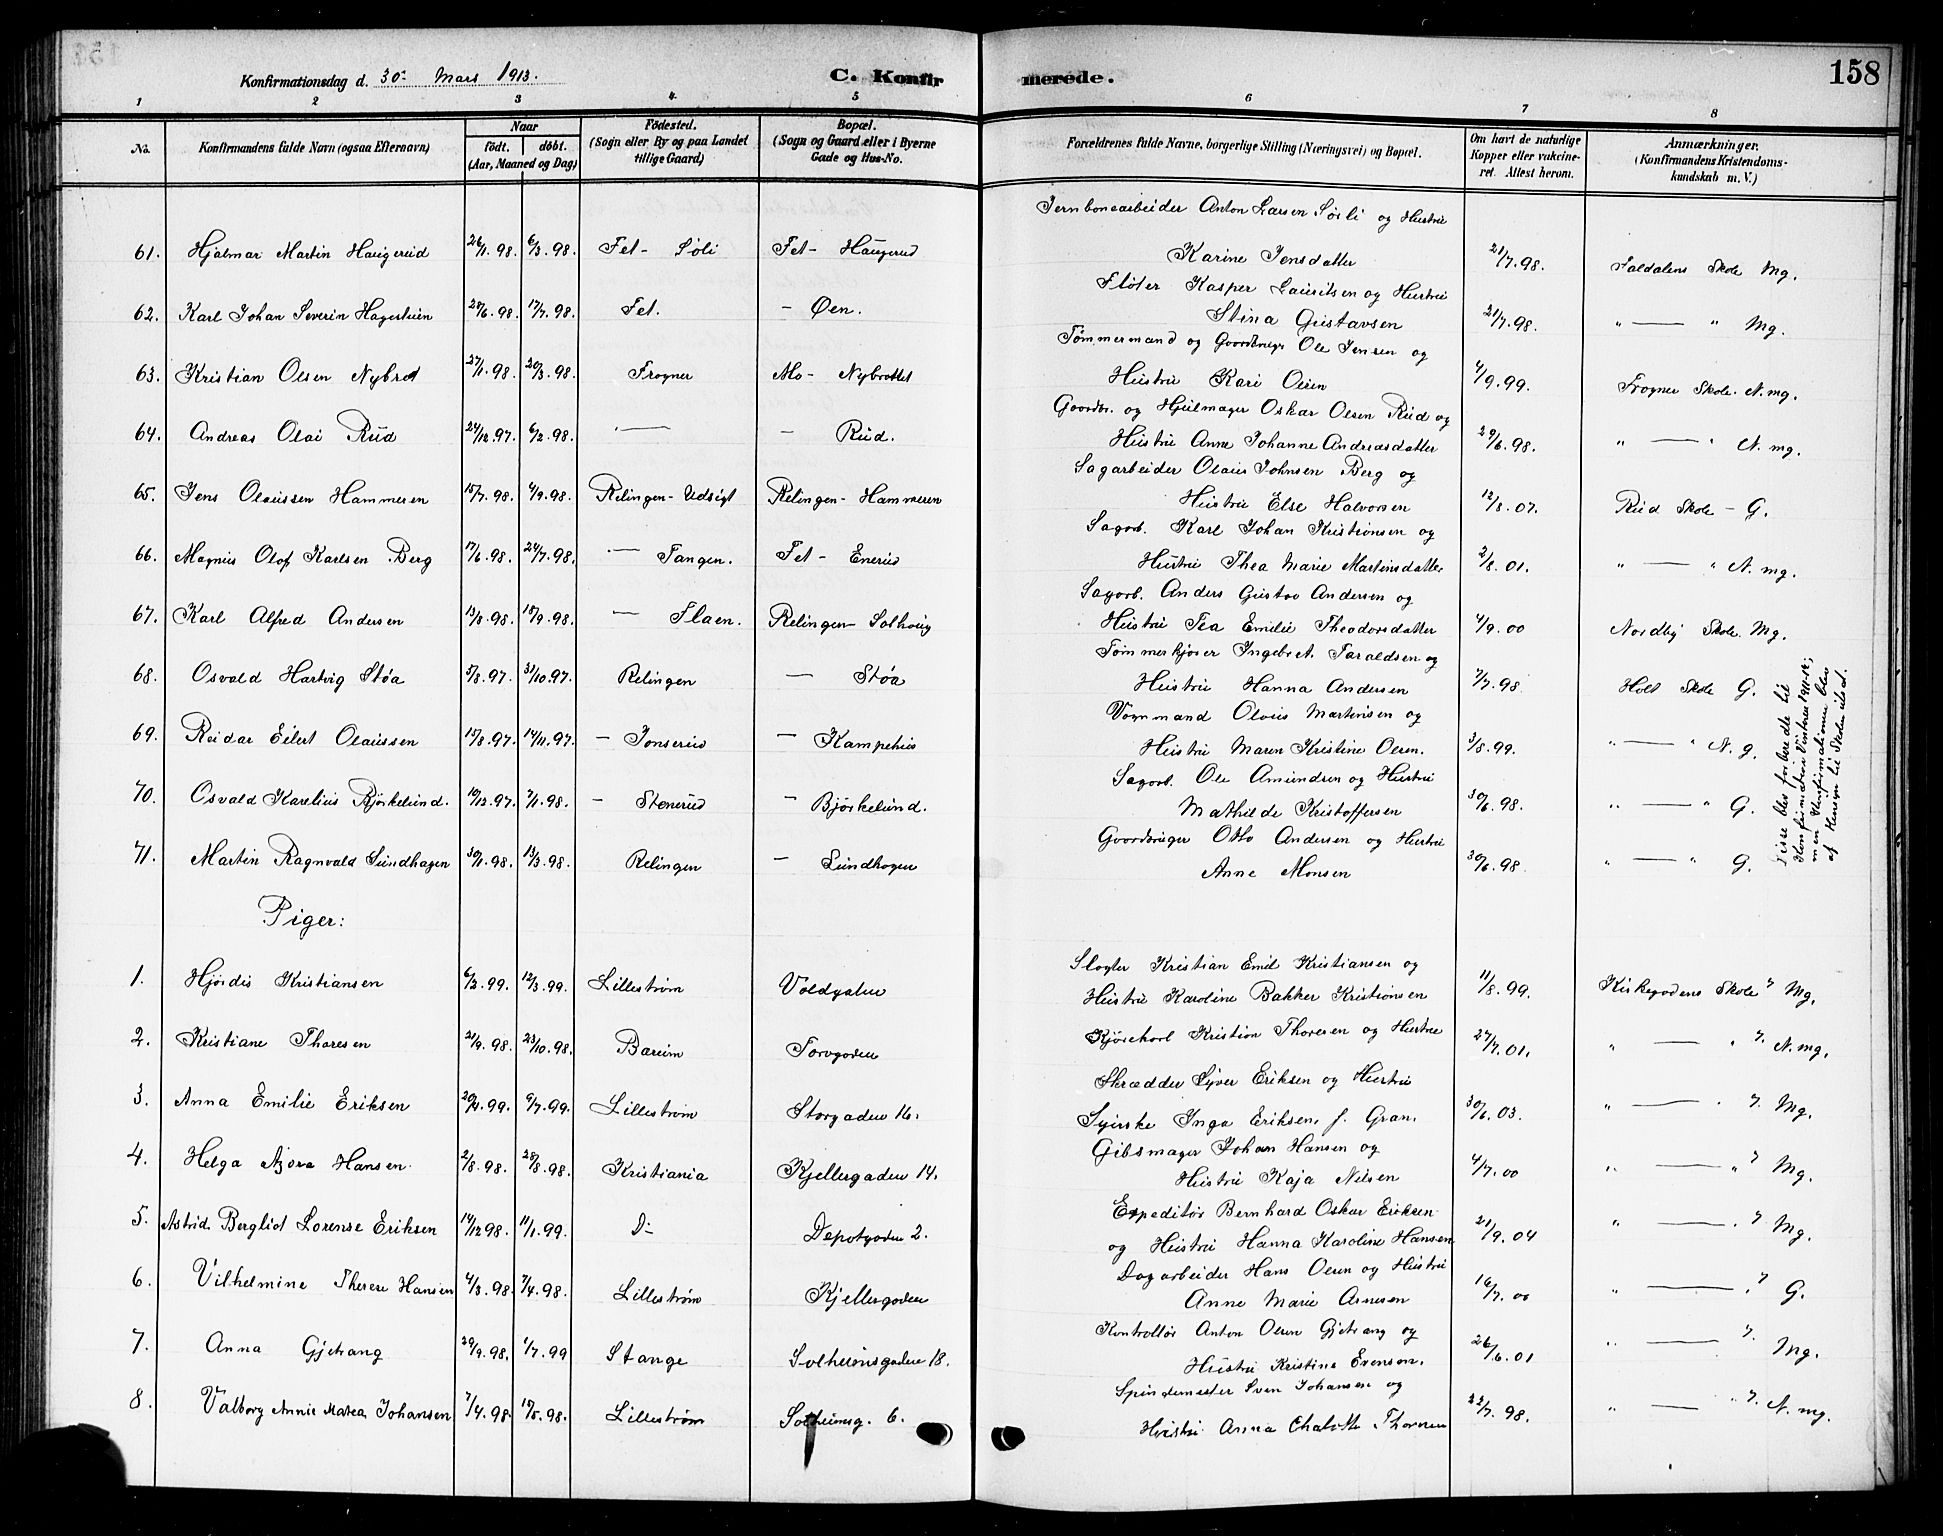 158
Konfirmationsdag d. 30' Mars 1913.
C. Konfirmerede.
1 2 3 4 5 6 7 8
No.
Konfirmandens fulde Navn (ogsaa Efternavn)
Naar
født. døbt.
(Aar, Maaned og Dag)
Fødested.
(Sogn eller By og paa Landet
tillige Gaard)
Bopæl.
(Sogn og Gaard eller i Byerne
Gade og Hus-No.
Forældrenes fulde Navne, borgerlige Stilling (Næringsvei) og Bopæl.
Om havt de naturlige
Kopper eller vakcine-
ret. Attest herom.
Anmærkninger.
(Konfirmandens Kristendoms-
kundskab m. V.)
Jernbanearbeider Anton Larsen Sørli og Hustru
61. Hjalmar Martin Haugerud 26/1.98. 6/3.98. Fet - Søli Fet - Haugerud Karine Jensdatter 21/7.98. Faldalens Skole Mg.
Fløter Kasper Lauritsen og Hustru
62. Karl Johan Severin Hagesteen 28/6.98. 17/7.98. Fet. - Øen. Stina Gustavsen 21/7.98. " — " Mg.
Tømmermand og Gaardbruger Ole Jensen og
63. Kristian Olsen Nybrot 27/1.98. 20/3.98. Frogner Mo - Nybrottet Hustru Kari Olsen 4/9.99. Frogner Skole. N. mg.
Gaardbr. og Hjulmager Oskar Olsen Rud og
64. Andreas Olai Rud 24/12.97. 6/2.98. — - Rud. Hustru Anne Johanne Andreasdatter 29/6.98. " — " N. mg.
Sagarbeider Olaus Johnsen Berg og
65. Jens Olaussen Hammeren 15/7.98. 4/9.98. Relingen - Udsigt Relingen - Hammeren Hustru Else Halvorsen 12/8.07. Rud Skole - G.
Sagarb. Karl Johan Kristiansen og
66. Magnus Olof Karlsen Berg 17/6.98. 24/7.98. — Tangen. Fet - Enerud Hustru Thea Marie Martinsdatter 2/8.01. " — " N. mg.
Sagarb. Anders Gustav Andersen og
67. Karl Alfred Andersen 13/8.98. 18/9.98. — Flaen. Relingen - Solhaug Hustru Tea Emilie Theodorsdatter 4/9.00 Nordby Skole. Mg.
Tømmerkjører Ingebret Taraldsen og
68. Osvald Hartvig Støa 5/8.97. 31/10.97. Relingen — Støa Hustru Hanna Andersen 7/7.98. Holt Skole G.
Vognmand Olaus Martinsen og
69. Reidar Eilert Olaussen 15/8.97. 14/11.97. - Jonserud — Kampehus Hustru Maren Kristine Olsen. 3/8.99. " — " N. g.
Sagarb. Ole Amundsen og Hustru
70. Osvald Karelius Bjørkelund. 10/12.97. 7/1.98. - Stenerud — Bjørkelund. Mathilde Kristoffersen 30/6.98. " — " G.
Gaardbruger Otto Andersen og Hustru
71. Martin Ragnvald Sundhagen 30/1.98. 13/3.98. Relingen — Sundhagen Anne Monsen 30/6.98 " — " G.
Disse blev forberedte til
Konfirmation
men Konfirmationen blev
af Hensyn til Skolen udsat.
Piger:
Slagter Kristian Emil Kristiansen og
1. Hjørdis Kristiansen 6/2.99. 12/3.99. Lillestrøm Voldgaten Hustru Karoline Bakker Kristiansen 11/8.99. Kirkegadens Skole 7 Mg.
2. Kristiane Thoresen 21/9.98. 23/10.98. Bærum Torvgaden Kjørekarl Kristian Thoresen og Hustru 27/7.01. " — " 7. N. mg.
Skrædder Syver Eriksen og Hustru
3. Anna Emilie Eriksen 20/4.99. 9/7.99. Lillestrøm Storgaden 16. Syerske Inga Eriksen, f. Gran. 30/6.03. " — " 7. Mg.
Gibsmager Johan Hansen og
4. Helga Hansen. 2/8.98. 28/8.98. Kristiania Kjellergaden 14. Hustru Kaja Nilsen 4/7.00 " — " 7 Mg.
Expeditør Bernhard Oskar Eriksen
5. Astrid Bergliot Lorense Eriksen 14/12 98. 11/1.99. D- Depotgaden 2. og Hustru Hanna Karoline Hansen 21/9.04 " — " 7. Mg.
Dagarbeider Hans Olsen og Hustru
6. Vilhelmine Therese Hansen 4/3.98. 7/4.98. Lillestrøm Kjellergaden Anne Marie Arnesen 16/7.00 " — " 7 G.
Kontrollør Anton Olsen Gjetrang og
7. Anna Gjetrang 29/9.98. 1/7.99 Stange Solheimsgaden 18. Hustru Kristine Evensen. 26/6.01 " — 7. Mg.
Spindemester Sven Johansen og
8. Valborg Annie Matea Johansen 7/4.98. 15/5.98. Lillestrøm Solheimsg. 6. Hustru Anna Chalotte Thoresen 22/7.98. " — " 7. N. mg.